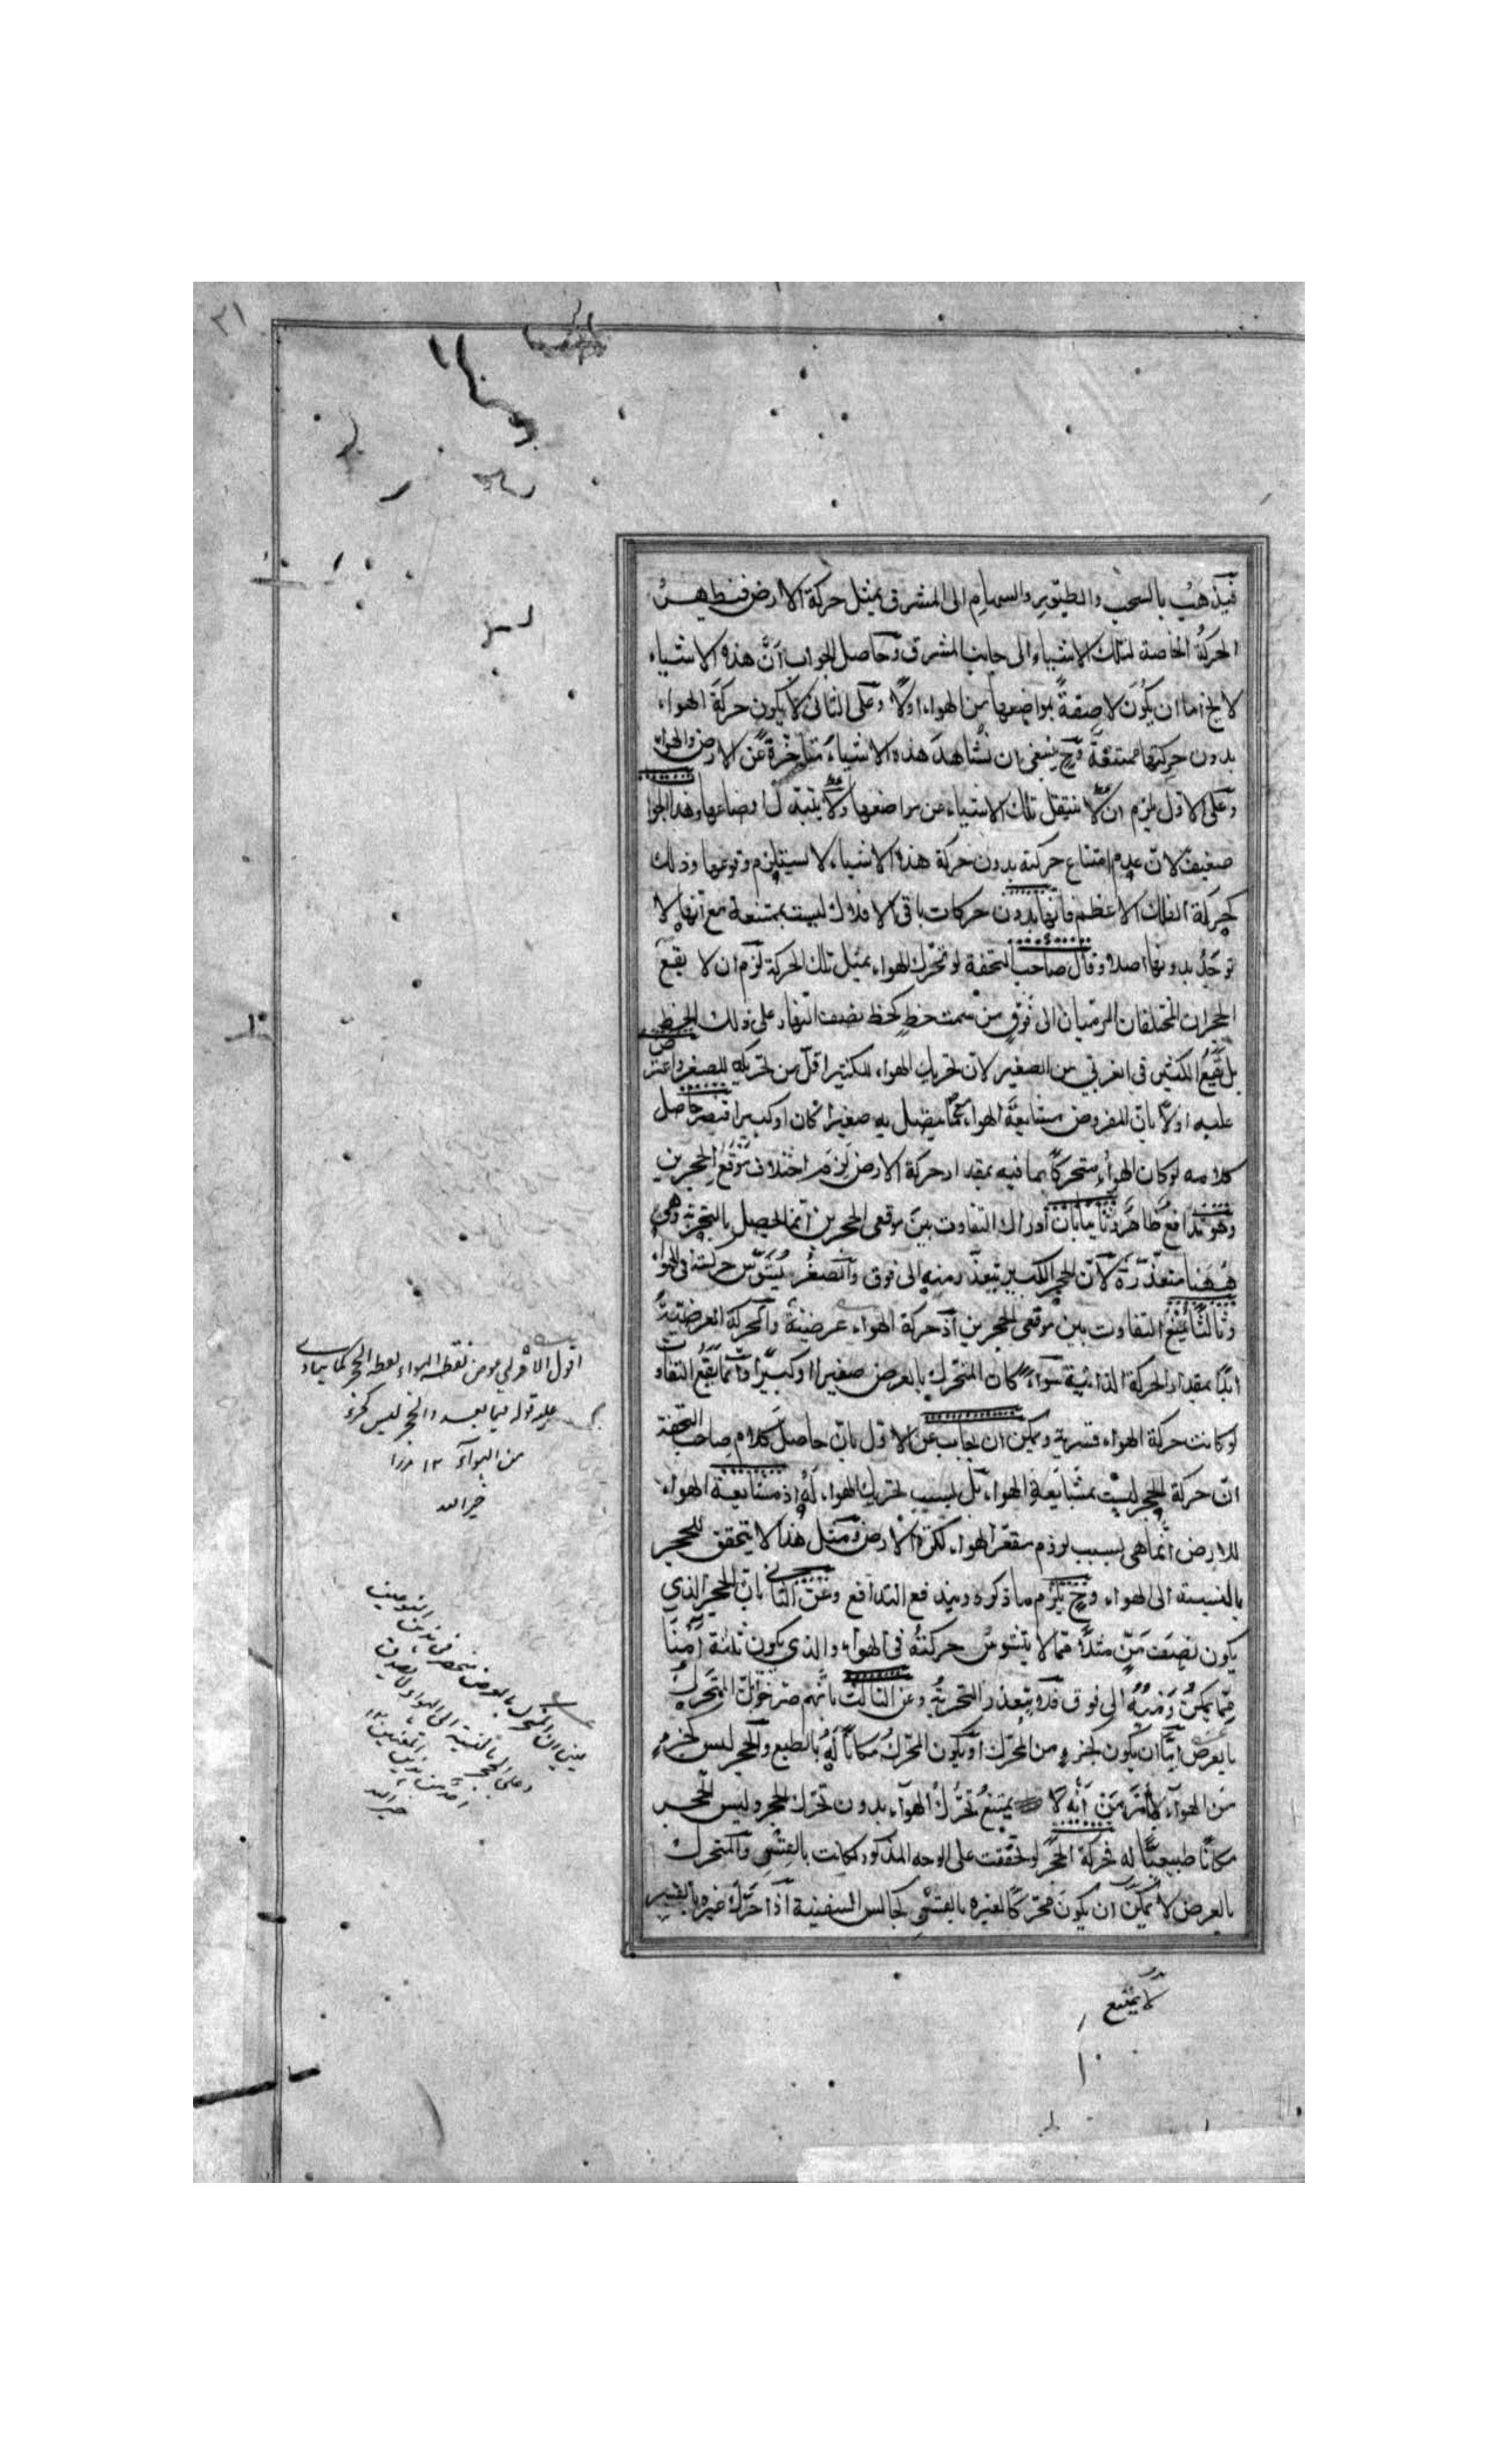 ٢١
فيذهب بالسحب والطيور والسهام الى المشرق بمثل حركة الارض فيظهر
الحركة الخاصة لتلك الاشياء الى جانب المشرق وحاصل الجواب ان هذه الاشياء
لا يخ اما ان يكون لاصقة بمواضعها من الهواء اولا وعلى الثانى لا يكون حركة الهواء
بدون حركتها ممتنعة وح ينبغى ان نشاهد هذه الاشياء متأخرة عن الارض والهواء
وعلى الاول يلزم ان لا ينتقل تلك الاشياء عن مواضعها ولا يتبدل اوضاعها وهذا الجوا
ضعيف لان عدم امتناع حركته بدون حركة هذه الاشياء لا يستلزم وقوعها وذلك
كحركة الفلك الاعظم فانها بدون حركات باقى الافلاك ليست بممتنعة مع انها لا
توجد بدونها اصلا وقال صاحب التحفة لو تحرك الهواء بمثل تلك الحركة لزم ان لا يقع
الحجران المختلفان المرميان الى فوق من سمت خط كخط نصف النهار على ذلك الخط
بل يقع الكبير فى الغربي من الصغير لان تحريك الهواء للكبير اقل من تحريكه للصغير واعترض
عليه اولا بان المفروض مشايعة الهواء مع ما يتصل به صغيرا كان او كبيرا فيصير حاصل
كلامه لو كان الهواء متحركا بما فيه بمقدار حركة الارض لزم اختلاف موقع الحجرين
وهو تدافع ظاهر وثانيا بان ادراك التفاوت بين موقعى الحجرين انما يحصل بالتجربة وهى
ههنا متعذرة لان الحجر الكبير يتعذر رميه الى فوق والصغير يشوش حركته فى الهواء
وثالثا يمنع التفاوت بين موقعى الحجرين اذ حركة الهواء عرضية والحركة العرضية
ابدا بمقدار الحركة الذاتية سواء كان المتحرك بالعرض صغيرا او كبيرا وانما يقع التفاوت
لو كانت حركة الهواء قسرية ويمكن ان يجاب عن الاول بان حاصل كلام صاحب التحفة
ان حركة الحجر ليست بمشايعة الهواء بل بسبب تحريك الهواء له اذ مشايعة الهواء
للارض انما هى بسبب لزوم مقعر الهواء لكرة الارض ومثل هذا لا يتحقق للحجر
بالنسبة الى الهواء وح يلزم ما ذكره ويندفع التدافع وعن الثانى بان الحجر الذي
يكون نصف من مثلا مما لا يتشوش حركته فى الهواء والذي يكون ثلثة امنا
مما يمكن رميه الى فوق فلا يتعذر التجربة وعن الثالث بانهم صرحوا بان المتحرك
بالعرض اما ان يكون كجزء من المحرك او يكون المحرك مكانا له بالطبع والحجر ليس كجزء
من الهواء لما مر من انه لا يمتنع تحرك الهواء بدون تحرك الحجر وليس الحجر
مكانا طبيعيا له فحركة الحجر لو تحققت على الوجه المذكور لكانت بالقسر والمتحرك
بالعرض لا يمكن ان يكون محركا لغيره بالقسر كجالس السفينة اذا حرك غيره بالقسر
لا يمتنع
اقول الاولى عوض لفظة الهواء لفظة الحجر كما ينادى
عليه قوله فيما بعد والحجر ليس كجزء
من الهواء ١٢ مرزا
خير الله
يعنى ان المتحرك بالعرض منحصر فى هذين النوعين
وعلى الحجر بالنسبة الى الهواء لا يصدق
خير الله